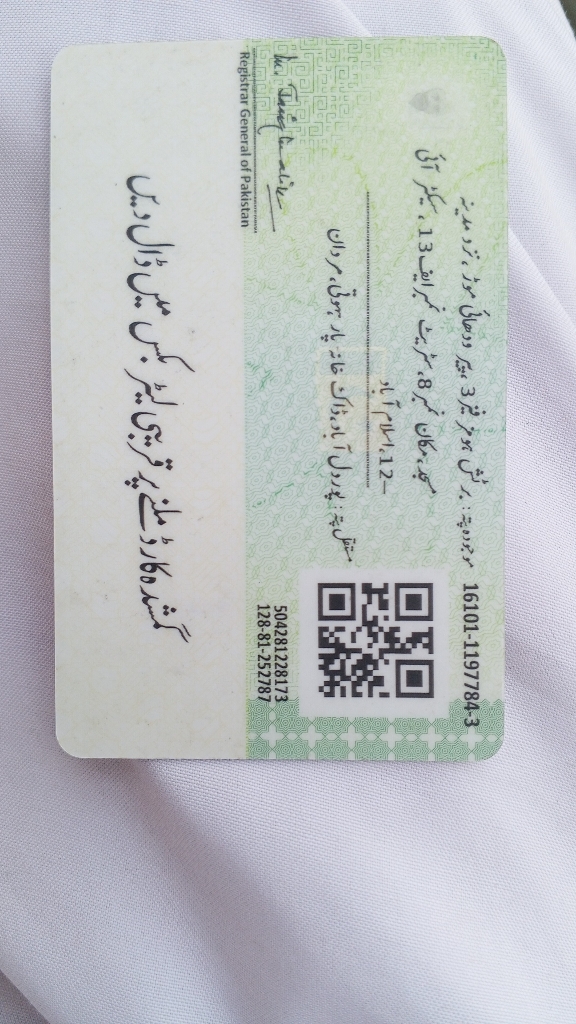 16101-1197784-3
موجودہ پتہ: برکش ہومز فیز 3، پیر ودھائی موڑ، نزد مدینہ
مسجد، مکان نمبر 8، سٹریٹ نمبر ایف 13، سیکٹر آئی
-12، اسلام آباد
مستقل پتہ: پوردل آباد، ڈاک خانہ پار ہوتی، مردان
504281228173
128-81-252787
Registrar General of Pakistan
گمشدہ کارڈ ملنے پر قریبی لیٹر بکس میں ڈال دیں